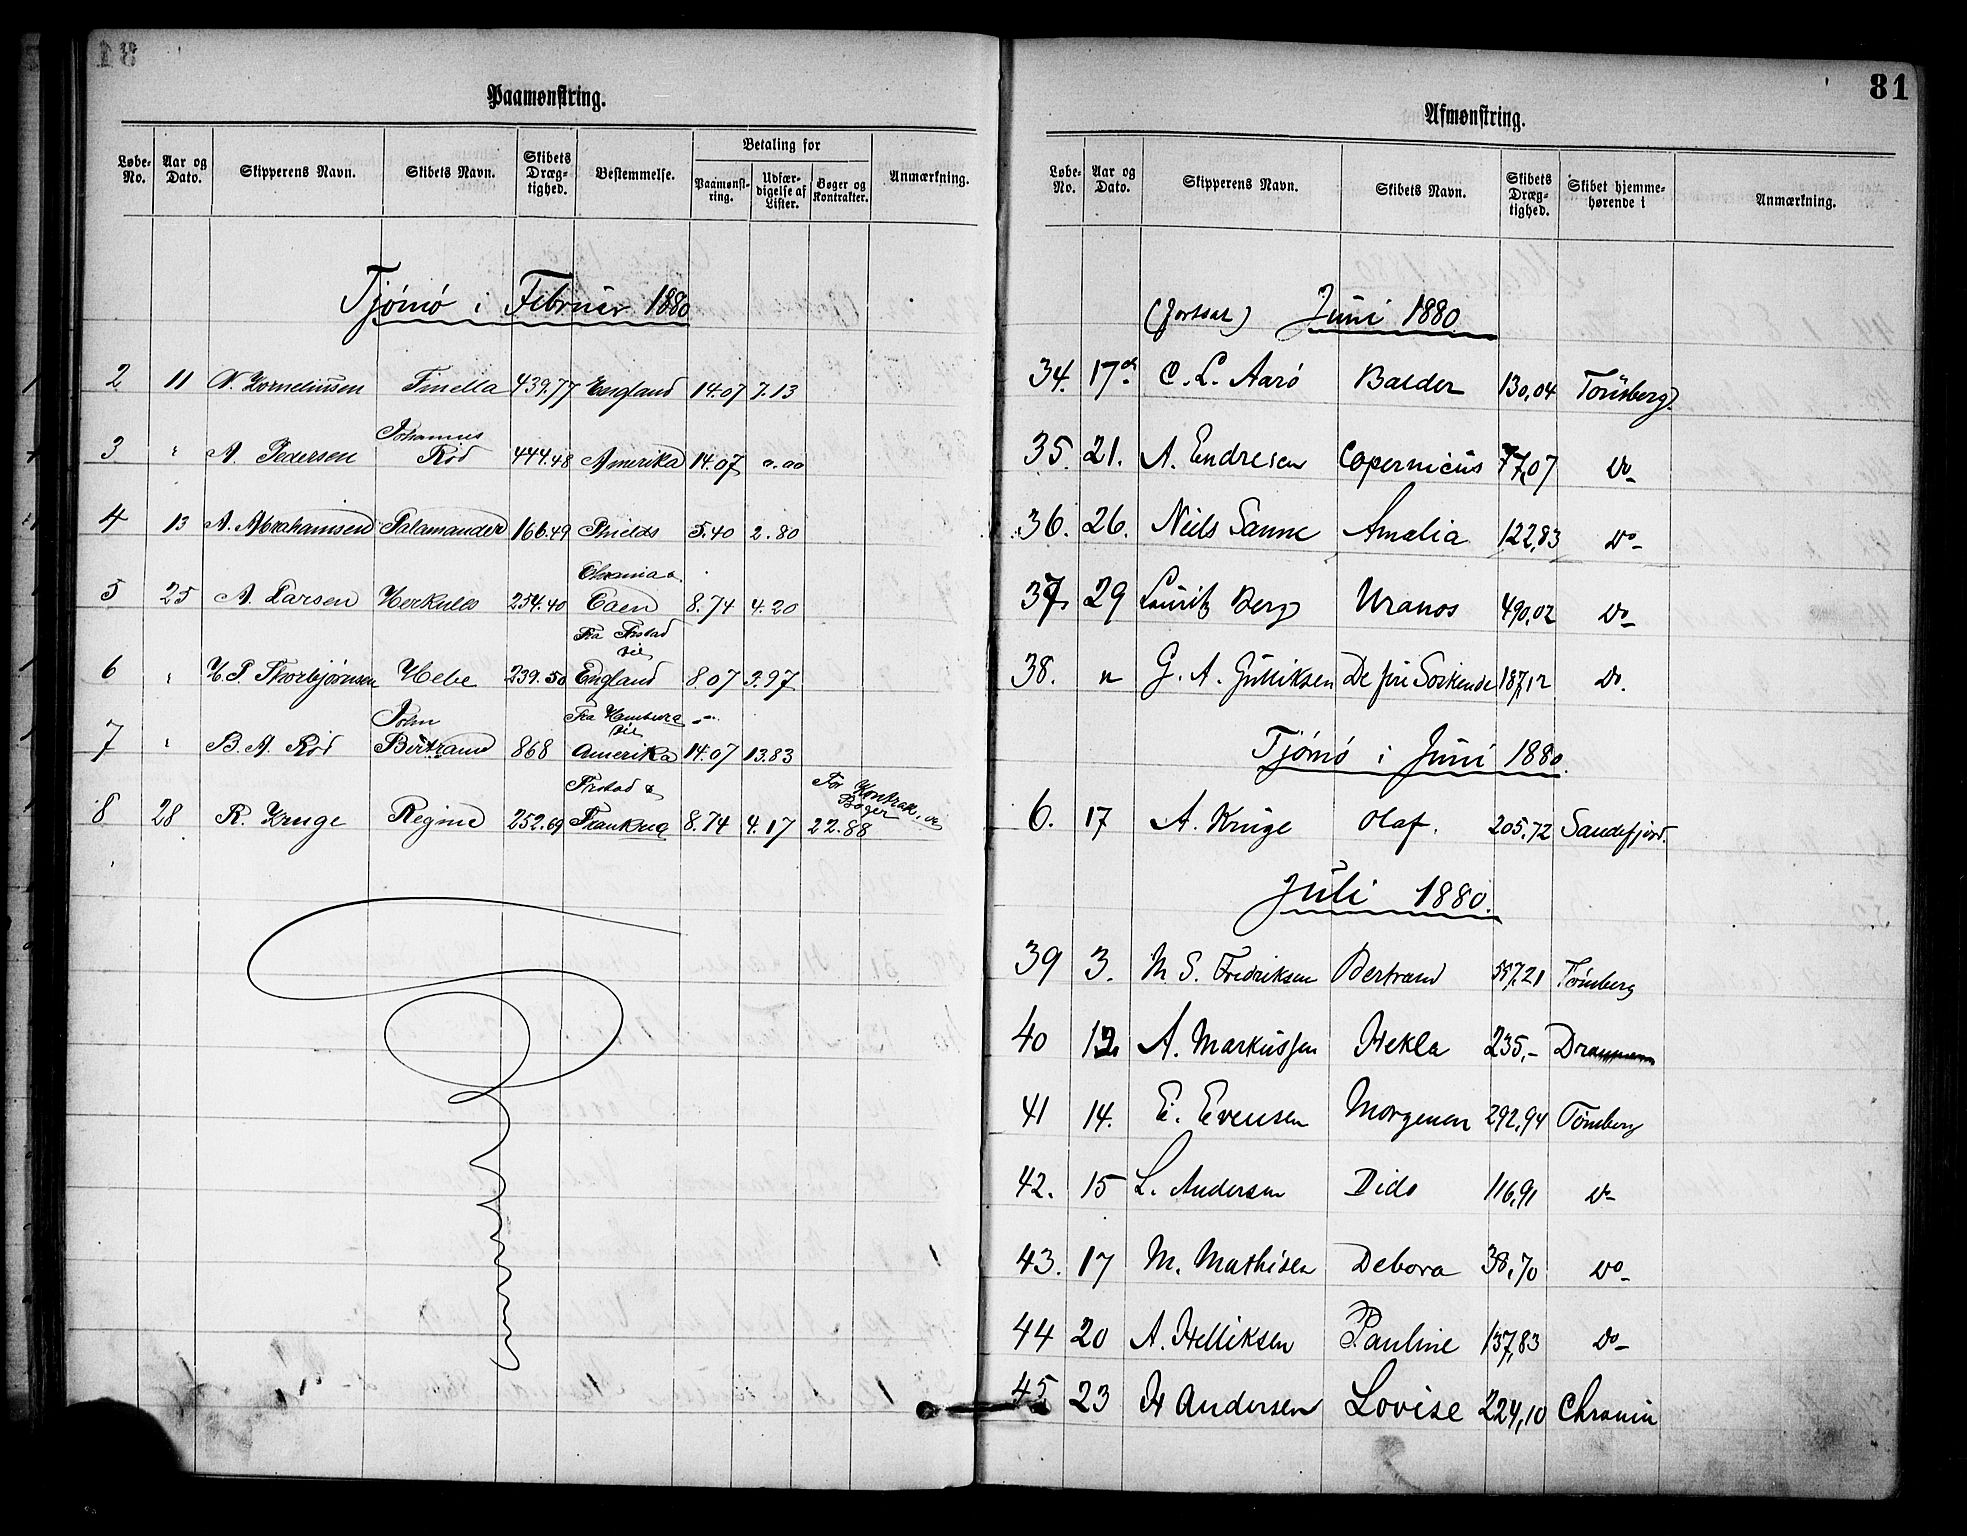 Paamønstring.
Løbe-No. Aar og Dato. Skipperens Navn. Skibets Navn. Skibets Dræg-tighed. Bestemmelse. Betaling for Paamønst-ring. Udfær-digelse af Lister. Bøger og Kontrakter. Anmærkning.
Tjömö i Februar 1880
2 11 N. Korneliusen Finella 439.77 England 14.07 7.13
Johannes
3 " A. Pedersen Röd 444.48 Amerika 14.07 0.00
4 13 A. Abrahamsen Salamander 166.49 Shields 5.40 2.80
Chrania &
5 25 A. Larsen Herkules 254.40 Caen 8.74 4.20
Fra Frstad
til
6 " H. P. Thorbjørnsen Hebe 239.50 England 8.07 3.97
John Fra Hamburg
til
7 " B. A. Röd Bertrand 868 Amerika 14.07 13.83
Frstad & For Kontrak. og
Bøger
8 28 R. Kruge Regine 252.69 Frankrig 8.74 4.17 22.88
81
Afmønstring.
Løbe-No. Aar og Dato. Skipperens Navn. Skibets Navn. Skibets Dræg-tighed. Skibet hjemme-hørende i Anmærkning.
(fortsat) Juni 1880
34. 17de C. L. Aarö Balder 130,04 Tönsberg
35. 21. A. Endresen Copernicus 77,07 Do-
36. 26. Niels Sanne Amalia 122,83 Do-
37 29 Lauritz Berg Uranos 490,02 Do-
38. " G. A. Gulliksen De fire Søskende 187,12 Do.
Tjömö i Juni 1880.
6. 17 A. Kruge Olaf. 205.72 Sandefjord.
Juli 1880.
39 3. M. S. Fredriksen Bertrand 557,21 Tönsberg
40 12. A. Markussen Hekla 235,-
41 14. E. Evensen Morgenen 292,94 Tönsberg
42. 15 L. Andersen Dido 116,91 Do-
43. 17 M. Mathisen Debora 38,70 Do-
44 20 A. Helliksen Pauline 137,83 Do-
45 23 H Andersen Lovise 224,10 Chrania